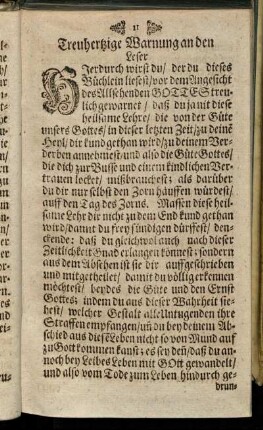 11
Treuhertzige Warnung an den
Leser
HIerdurch wirst du/ der du dieses
Büchlein liesest/ vor dem Angesicht
des Allsehenden GOTTES treu-
lich gewarnet/ daß du ja nit diese
heilsame Lehre/ die von der Güte
unsers Gottes/ in dieser letzten Zeit/ zu deinē
Heyl/ dir kund gethan wird/ zu deinem Ver-
derben annehmest/ und also die Güte Gottes/
die dich zur Busse und einem kindlichen Ver-
trauen locket/ mißbrauchest: als darüber
du dir nur selbst den Zorn häuffen würdest/
auff den Tag des Zorns. Massen diese heil-
same Lehr dir nicht zu dem End kund gethan
wird/ damit du frey sündigen dürffest/ den-
ckende: daß du gleichwol auch nach dieser
Zeitlichkeit Gnad erlangen könnest: sondern
aus dem Ursachen ist sie dir auffgeschrieben
und mitgetheilet/ damit du völlig erkennen
möchtest/ beydes die Güte und den Ernst
Gottes: indem du aus dieser Wahrheit sie-
hest/ welcher Gestalt alle Untugenden ihre
Straffen empfangen/ uñ du bey deinem Ab-
schied aus diesē Leben nicht so von Mund auf
zu Gott kommen kanst: es sey deñ/ daß du an-
noch bey Leibes Leben mit GOtt gewandelt/
und also vom Tode zum Leben hindurch ge-
drun-